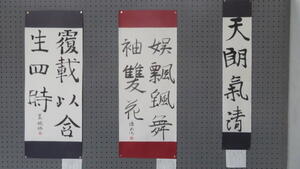 天朗氣清
娛飄颻舞
袖雙花
覆載以含
生四時